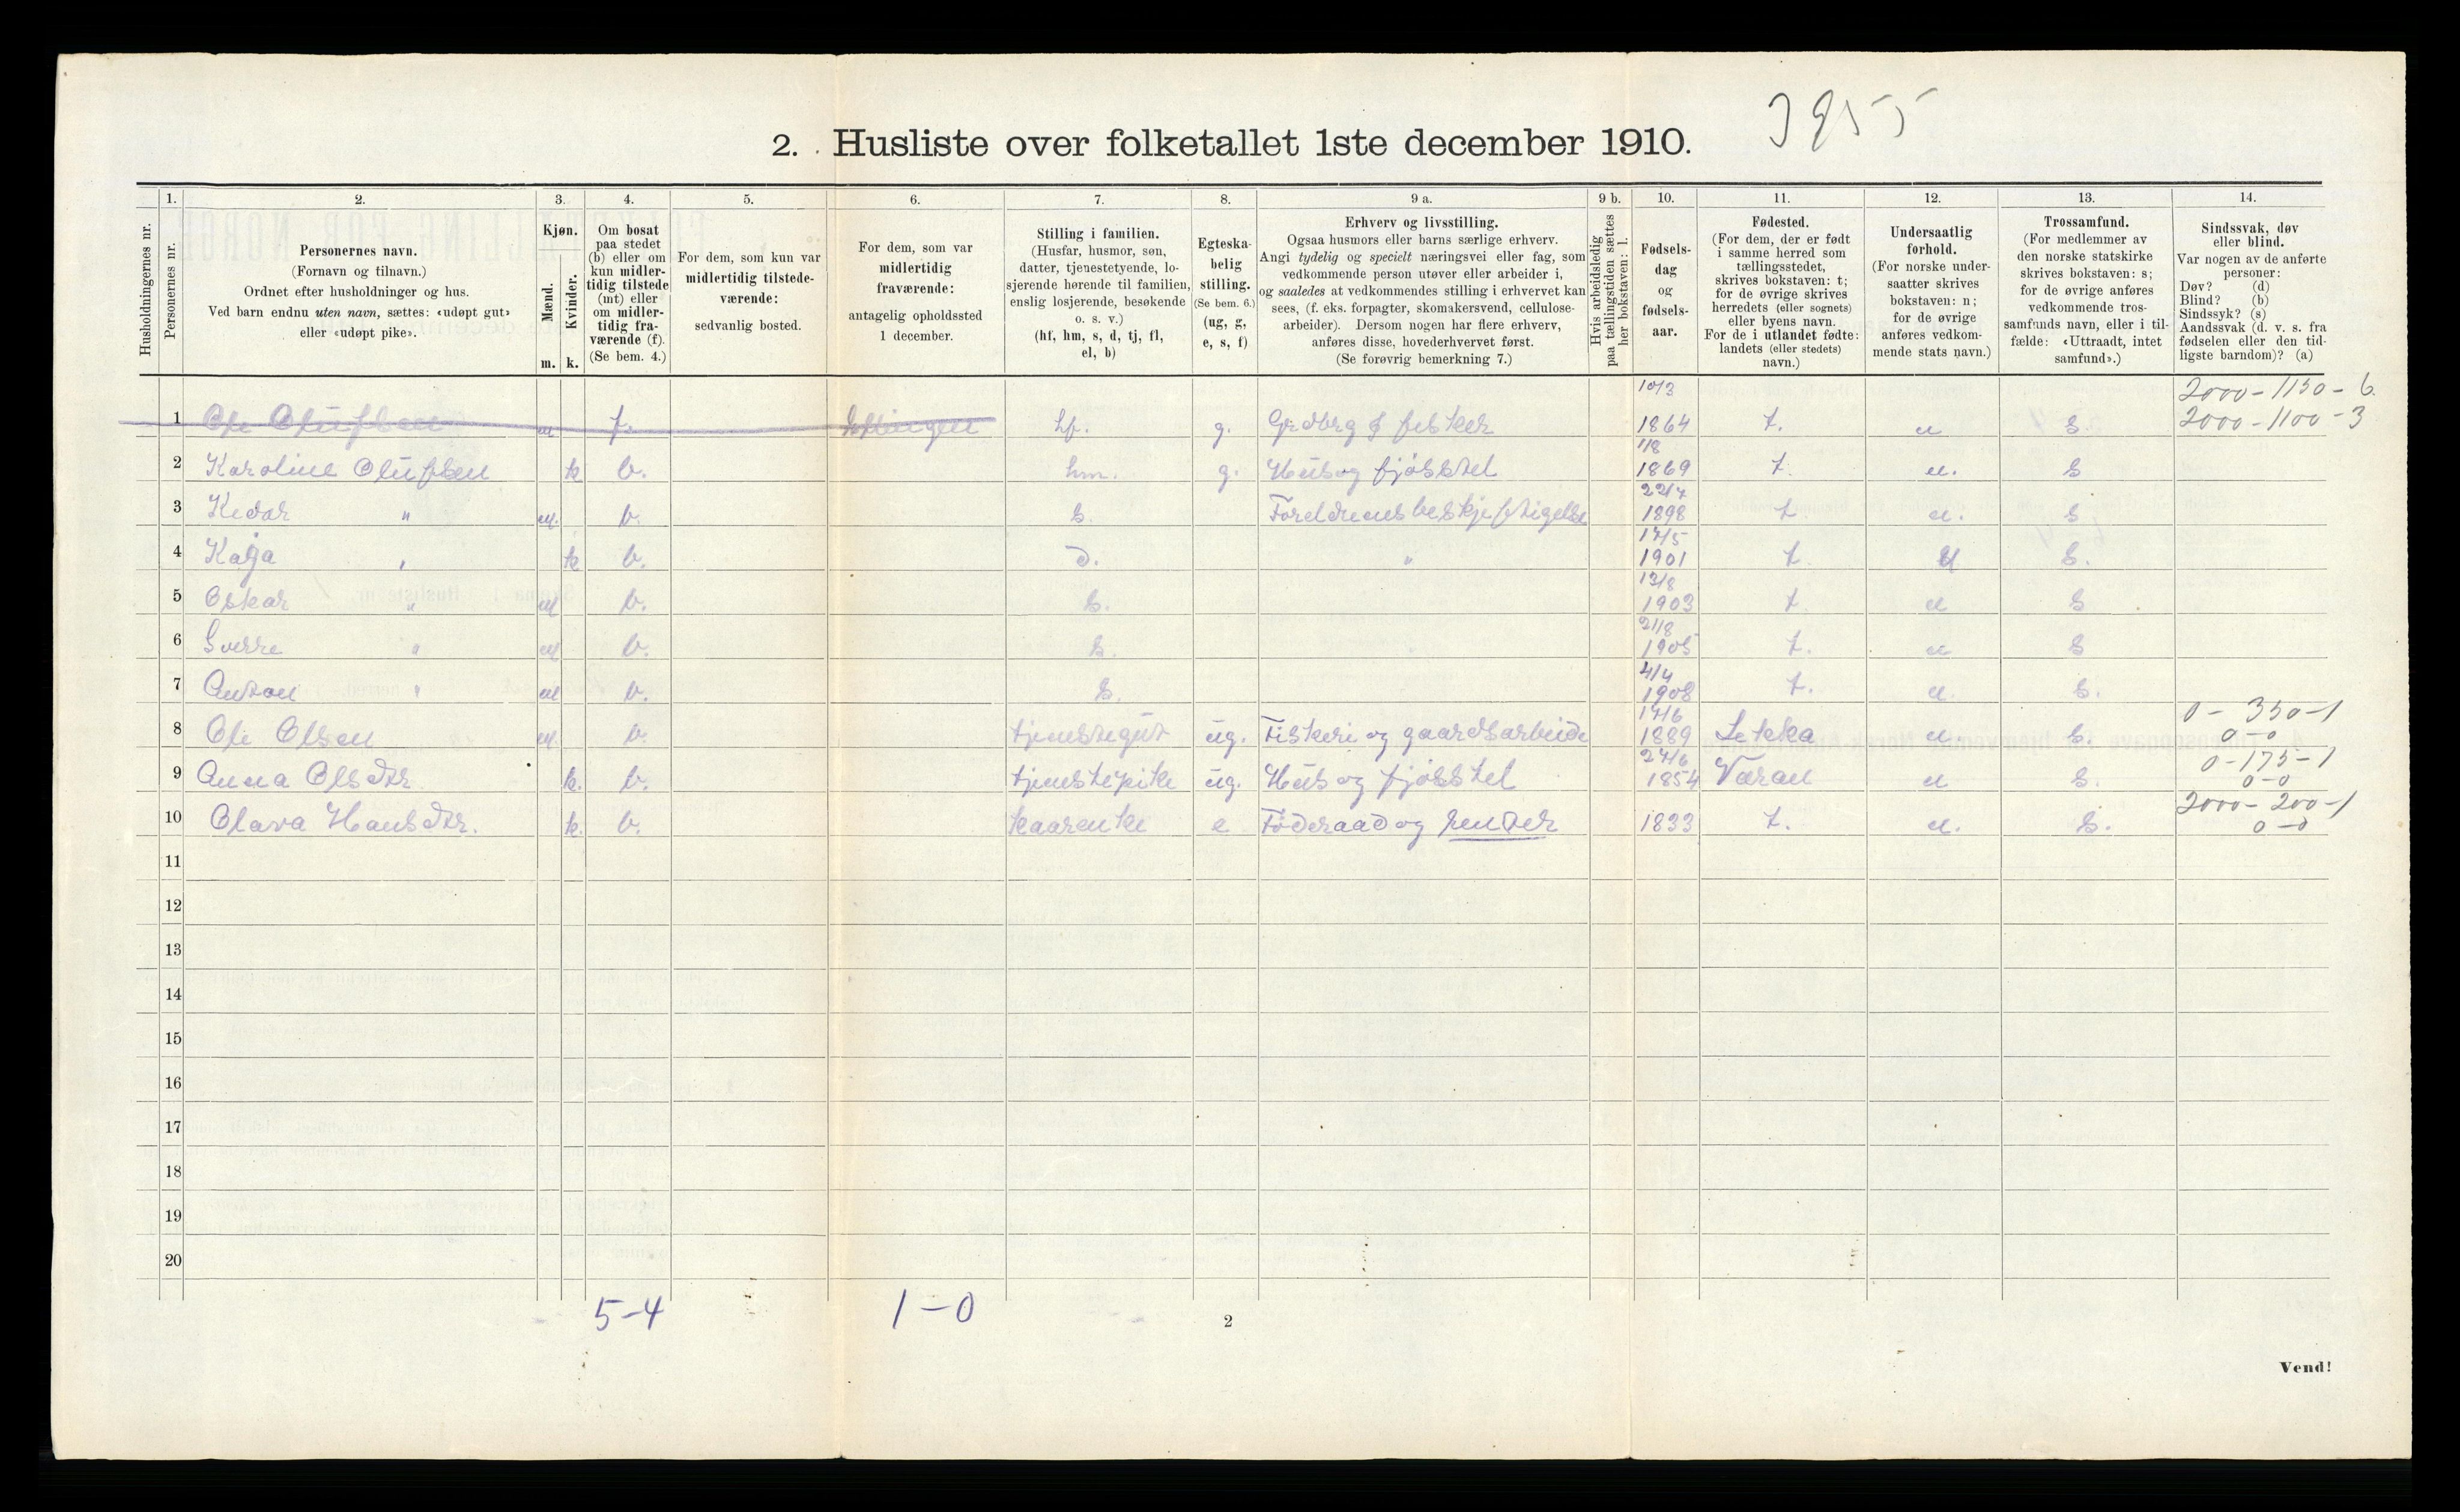 3955
2. Husliste over folketallet 1ste december 1910.
1. 2. 3. 4. 5. 6. 7. 8. 9 a. 9 b. 10. 11. 12. 13. 14.
Husholdningernes nr.
Personernes nr.
Personernes navn.
(Fornavn og tilnavn.)
Ordnet efter husholdninger og hus.
Ved barn endnu uten navn, sættes: «udøpt gut»
eller «udøpt pike».
Kjøn.
Mænd.
Kvinder.
m. k.
Om bosat
paa stedet
(b) eller om
kun midler-
tidig tilstede
(mt) eller
om midler-
tidig fra-
værende (f).
(Se bem. 4.)
For dem, som kun var
midlertidig tilstede-
værende:
sedvanlig bosted.
For dem, som var
midlertidig
fraværende:
antagelig opholdssted
1 december.
Stilling i familien.
(Husfar, husmor, søn,
datter, tjenestetyende, lo-
sjerende hørende til familien,
enslig losjerende, besøkende
o. s. v.)
(hf, hm, s, d, tj, fl,
el, b)
Egteska-
belig
stilling.
(Se bem. 6.)
(ug, g,
e, s, f)
Erhverv og livsstilling.
Ogsaa husmors eller barns særlige erhverv.
Angi tydelig og specielt næringsvei eller fag, som
vedkommende person utøver eller arbeider i,
og saaledes at vedkommendes stilling i erhvervet kan
sees, (f. eks. forpagter, skomakersvend, cellulose-
arbeider). Dersom nogen har flere erhverv,
anføres disse, hovederhvervet først.
(Se forøvrig bemerkning 7.)
Hvis arbeidsledig
paa tællingstiden sættes
her bokstaven: l.
Fødsels-
dag
og
fødsels-
aar.
Fødested.
(For dem, der er født
i samme herred som
tællingsstedet,
skrives bokstaven: t;
for de øvrige skrives
herredets (eller sognets)
eller byens navn.
For de i utlandet fødte:
landets (eller stedets)
navn.)
Undersaatlig
forhold.
(For norske under-
saatter skrives
bokstaven: n;
for de øvrige
anføres vedkom-
mende stats navn.)
Trossamfund.
(For medlemmer av
den norske statskirke
skrives bokstaven: s;
for de øvrige anføres
vedkommende tros-
samfunds navn, eller i til-
fælde: «Uttraadt, intet
samfund».)
Sindssvak, døv
eller blind.
Var nogen av de anførte
personer:
Døv? (d)
Blind? (b)
Sindssyk? (s)
Aandssvak (d. v. s. fra
fødselen eller den tid-
ligste barndom)? (a)
10/3 2000-1150-6
1 Ole Olufsen m f. hf. g. Grdbrg & fisker 1864 t. n s. 2000-1100-3
1/8
2 Karoline Olufsen k b. hm. g. Hus og fjøsstel 1869 t. n. s
22/7
3 Kedar " m. b. s. Foreldrenes beskjeftigelse 1898 t n. s
17/5
4 Kaja " k b. d. " 1901 t n s.
13/8
5 Oskar " m b. s. 1903 t n s
21/8
6 Sverre " m b. s. 1905 t. n s
4/4
7 Anton " m b. s. 1908 t. n. s.
17/6 0-350-1
8 Ole Olsen m. b. tjenstegut ug. Fiskeri og gaardsarbeide 1889 Lekka n. s. 0-0
27/6 0-175-1
9 Anna Olsdtr k. b. tjenstepike ug. Hus og fjøsstel 1854 Væran n s. 0-0
2000-200-1
10 Olava Hansdtr. k. b. kaarenke e Føderaad og renter 1833 t. n. s. 0-0
11
12
13
14
15
16
17
18
19
20
5-4 1-0
2
Vend!